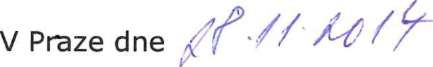 V Praze dne 28.11.2014